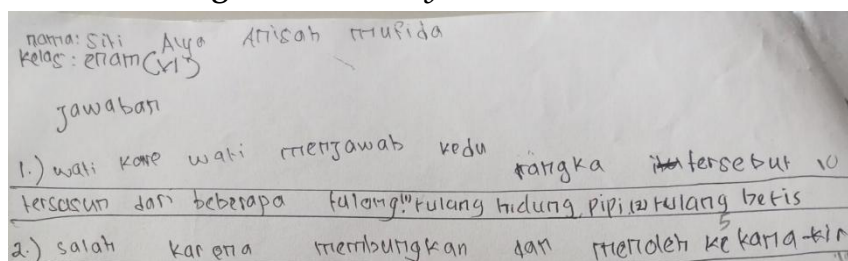 nama: Siti Alya Anisah mufida
kelas: enam (VI)
Jawaban
1.) wati kare wati menjawab kedu rangka tersebut 10
tersusun dari beberapa tulang (1) tulang hidung, pipi (2) tulang betis
2.) salah karena membungkan dan menoleh ke kana-kir